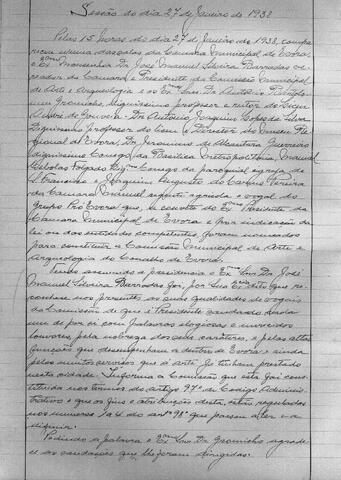 Sessão do dia 27 de Janeiro de 1938
Pelas 15 horas do dia 27 de Janeiro de 1938, compa
receram numa das salas da Camara Municipal de Evora,
o Exmo Dr. José Manuel Silveira Barradas ve
reador da Camara e Presidente da Comissão Municipal
de Arte e Arqueologia e os Exmos Snrs Dr. Antonio Bartolo
meu Gromicho, dignissimo professor e reitor do Liceu
André de Gouveia, Dr. Antonio Joaquim Lopes da Silva
Dignissimo professor do Liceu e Director do Museu Re
gional de Evora, Dr. Jeronimo de Alcantara Guerreiro
dignissimo Conego da Basilica Metropolitana, Manuel
Folgado Conego da paroquial igreja de
S. Francisco e Joaquim Augusto do Carmo Pereira
da Camara Manuel e vogal do
grupo Pró Evora que, a convite do Exmo Presidente da
Camara Municipal de Evora e por indicação da
lei ou das entidades competentes, foram nomeados
para constituir a Comissão Municipal de Arte e
Arqueologia do Concelho de Evora.
Tendo assumido a presidencia o Exmo Snr Dr. José
Manuel Silveira Barradas foi, por Sua Excia dito que re
conhece nos presentes as suas qualidades de vogais
da Comissão de que é Presidente saudando cada
um de per si com palavras elogiosas e merecidos
louvores, pela nobreza dos seus caráteres, e pelas altas
funções que desempenham a dentro de Evora e ainda
pelos muitos serviços que á arte teem prestado
nesta cidade. Informa a Comissão que esta foi cons
tituida nos termos do artigo 97º do Codigo Adminis
trativo e que os fins e atribuições desta, estão regulados
nos numeros 1 a 4 do artº 98º que passou a ler e a
Pedindo a palavra o Exmo Snr Dr. Gromicho agrade
ce as saudações que lhe foram dirigidas.